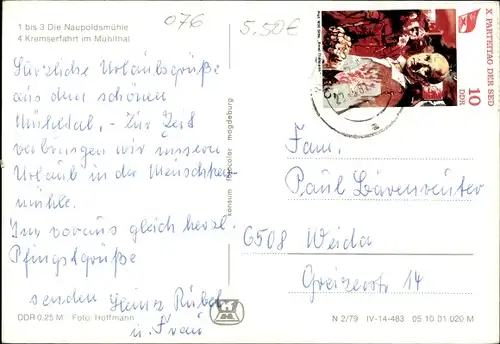 1 bis 3 Die Naupoldsmühle
4 Kremserfahrt im Mühlthal
076
5,50€
Herzliche Urlaubsgrüße
aus dem schönen
Mühltal. - Zur Zeit
verbringen wir unseren
Urlaub in der
mühle.
Im voraus gleich herzl.
Pfingstgrüße
senden Heinz
u. Frau
DDR 0,25 M Foto: Hoffmann
konsum fotocolor magdeburg
X. PARTEITAG DER SED
10
DDR
Fam.
Paul Bärenreuter
6508 Weida
Greizerstr 14
N 2/79 IV-14-483 05 10 01 020 M